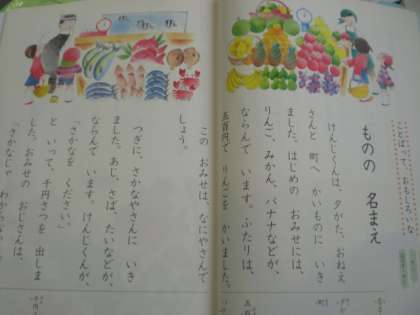 ことばって、おもしろいな
ものの 名まえ
けんじくんは、夕がた、おねえ
さんと 町へ かいものに いき
ました。はじめの おみせには、
りんご、みかん、バナナなどが、
ならんで います。ふたりは、
五百円で りんごを かいました。
この おみせは、なにやさんで
しょう。
つぎに、さかなやさんに いき
ました。あじ、さば、たいなどが、
ならんで います。けんじくんが、
「さかなを ください。」
と いって、千円さつを 出しま
した。おみせの おじさんは、
「さかなじゃ わからない